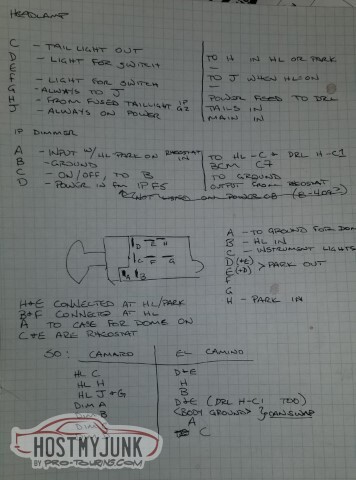 HEADLAMP
C - TAIL LIGHT OUT
D - LIGHT FOR SWITCH
E -
F - LIGHT FOR SWITCH
G - ALWAYS TO J
H - FROM FUSED TAILLIGHT IP
J - ALWAYS ON POWER
TO H IN HL OR PARK
TO J WHEN HL=ON
POWER FEED TO DRL
TAILS IN
MAIN IN
IP DIMMER
A - INPUT W/HL PARK ON RHEOSTAT IN
B - GROUND
C - ON/OFF, TO B
D - POWER IN fm IPF5
TO HL-C & DRL H-C1
BCM C7
TO GROUND
OUTPUT FROM RHEOSTAT
A - TO GROUND FOR DOME
B - HL IN
C - INSTRUMENT LIGHTS
D (+E)
E (+D) > PARK OUT
F
G
H - PARK IN
D E H
C F G
A B
H+E CONNECTED AT HL/PARK
B+F CONNECTED AT HL
A TO CASE FOR DOME ON
C+E ARE RHEOSTAT
SO: CAMARO EL CAMINO
HL C D+E
HL H H
HL J+G B
DIM A D+E (DRL H-C1 TOO)
DIM B <BODY GROUND> } CAN SWAP
DIM C A
C
HOSTMYJUNK
BY PRO-TOURING.COM